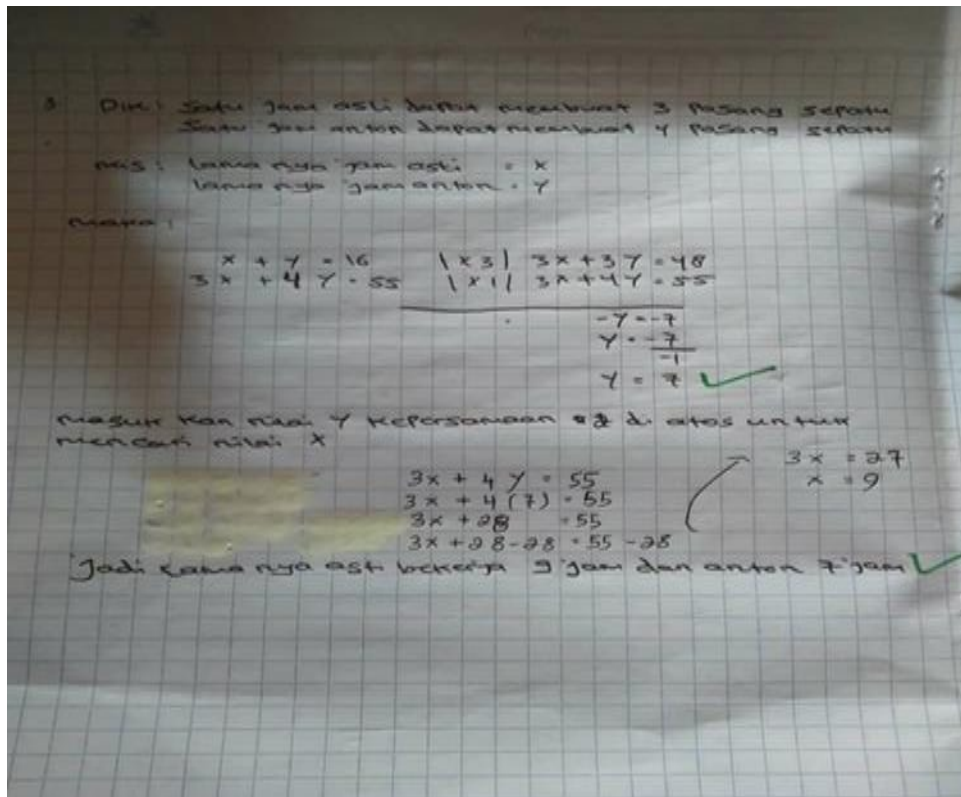 Dik: Satu jam asti dapat membuat 3 Pasang sepatu
Satu jam anton dapat membuat 4 Pasang sepatu
mis: lama nya jam asti = x
lama nya jam anton = y
maka:
x + y = 16 | x 3 | 3x + 3y = 48
3x + 4y = 55 | x 1 | 3x + 4y = 55
-y = -7
y = -7
-1
y = 7 ✓
masuk kan nilai y kepersamaan di atas untuk
mencari nilai x
3x + 4y = 55
3x + 4(7) = 55
3x + 28 = 55
3x + 28 - 28 = 55 - 28
→ 3x = 27
x = 9
Jadi lama nya asti bekerja 9 jam dan anton 7 jam ✓